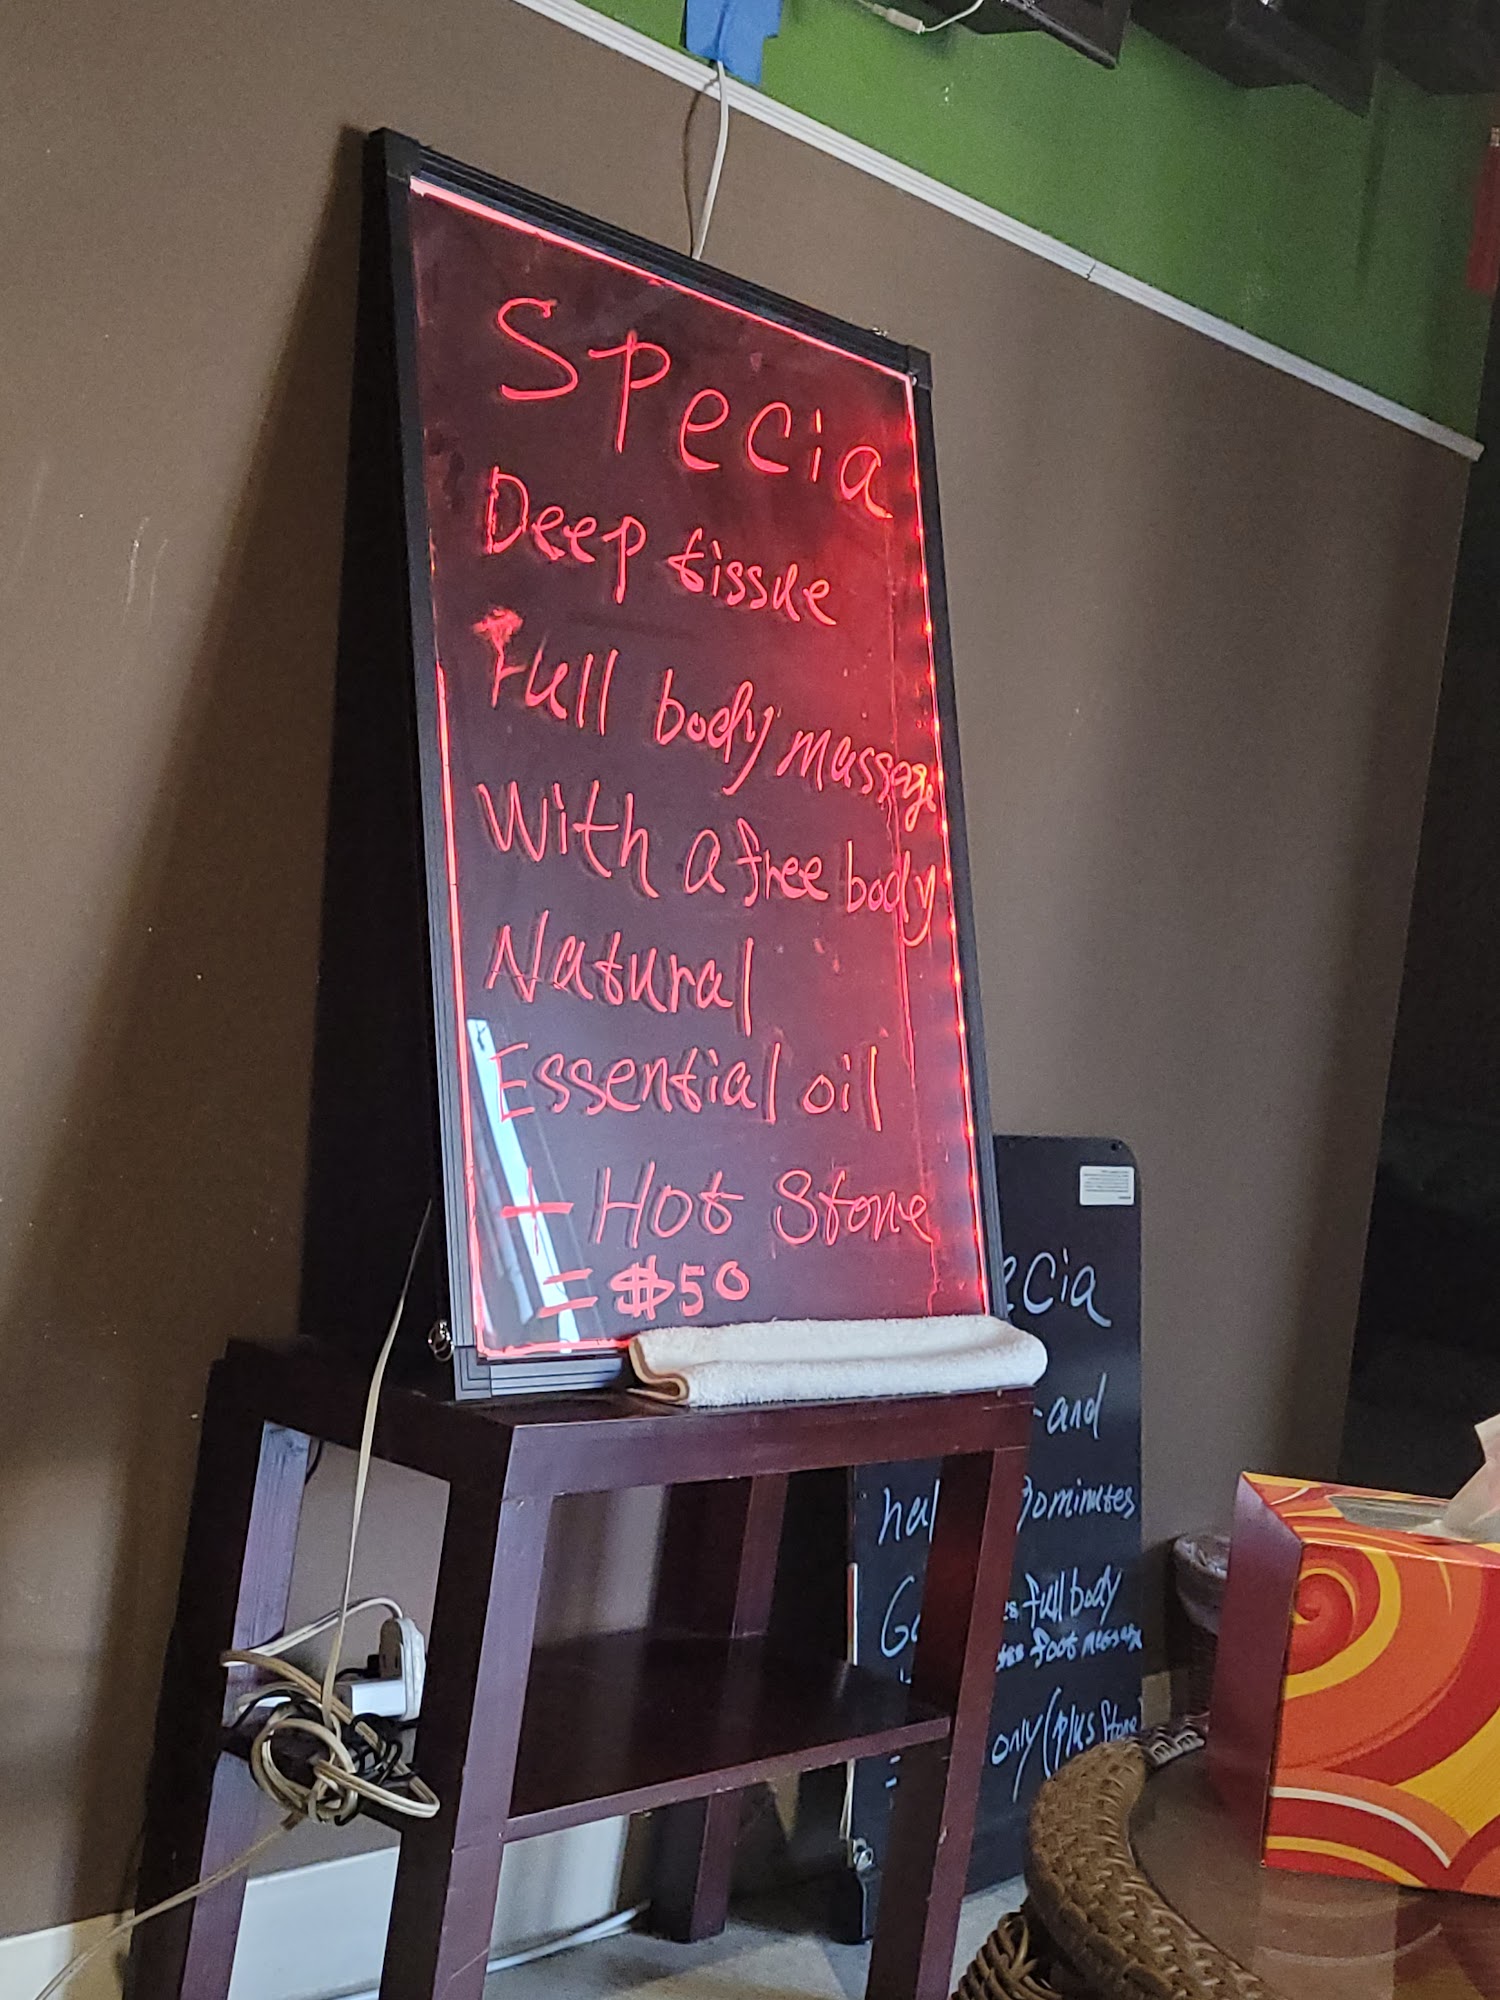 Specia
Deep tissue
Full body massage
With a free body
Natural
Essential oil
+ Hot Stone
= $50
ecia
and
hal 30minutes
full body
foot massage
only (plus stone